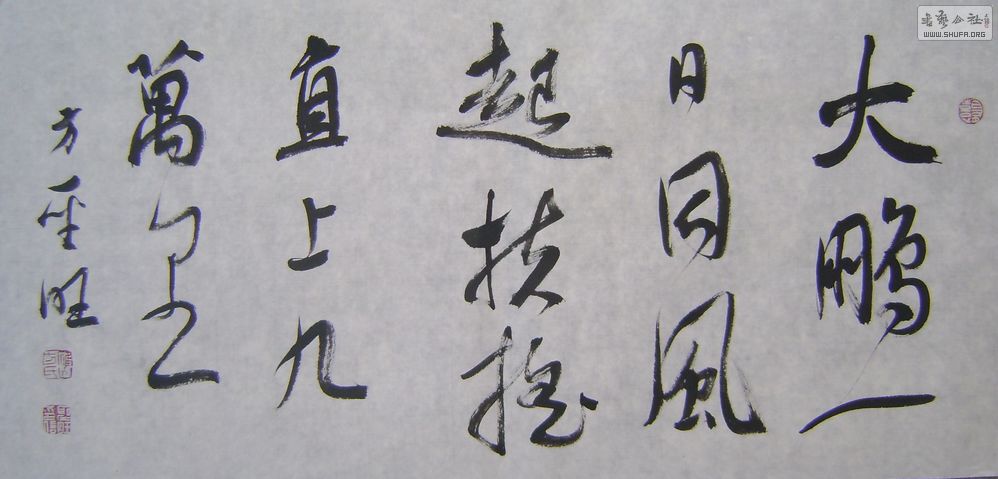 大鹏一
日同風
起扶摇
直上九
萬里
方聖旺
書藝公社
WWW.SHUFA.ORG